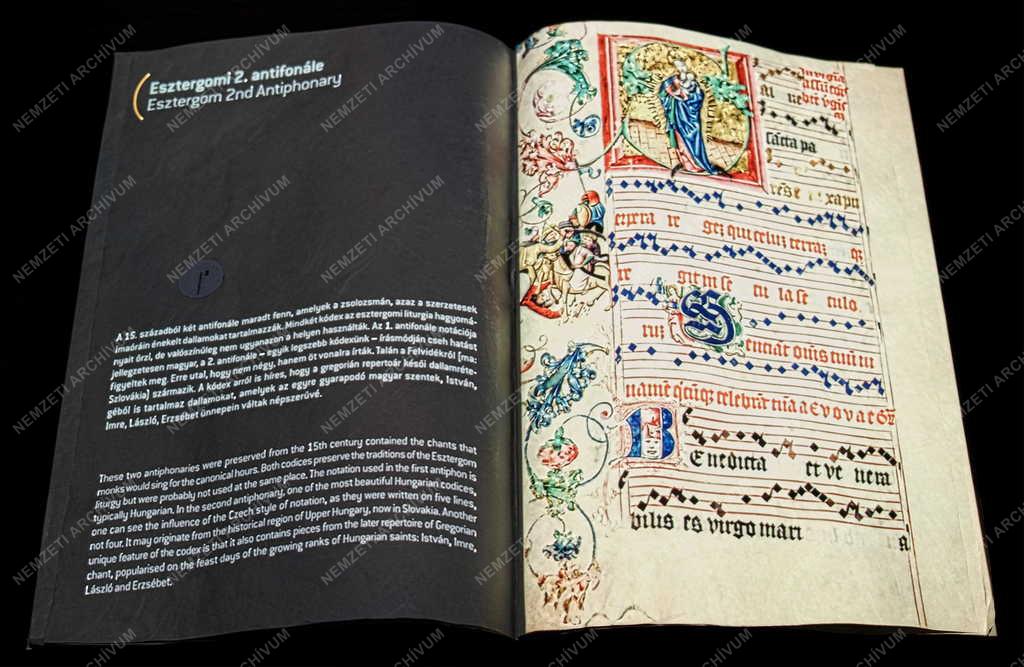 Esztergomi 2. antifonále
Esztergom 2nd Antiphonary
A 15. századból két antifonále maradt fenn, amelyek a zsolozsmán, azaz a szerzetesek
imaóráin énekelt dallamokat tartalmazzák. Mindkét kódex az esztergomi liturgia hagyomá-
nyait őrzi, de valószínűleg nem ugyanazon a helyen használták. Az 1. antifonále notációja
jellegzetesen magyar, a 2. antifonále – egyik legszebb kódexünk – írásmódján cseh hatást
figyeltek meg. Erre utal, hogy nem négy, hanem öt vonalra írták. Talán a Felvidékről [ma:
Szlovákia] származik. A kódex arról is híres, hogy a gregorián repertoár késői dallamréte-
géből is tartalmaz dallamokat, amelyek az egyre gyarapodó magyar szentek, István,
Imre, László, Erzsébet ünnepein váltak népszerűvé.
These two antiphonaries were preserved from the 15th century contained the chants that
monks would sing for the canonical hours. Both codices preserve the traditions of the Esztergom
liturgy but were probably not used at the same place. The notation used in the first antiphon is
typically Hungarian. In the second antiphonary, one of the most beautiful Hungarian codices,
one can see the influence of the Czech style of notation, as they were written on five lines,
not four. It may originate from the historical region of Upper Hungary, now in Slovakia. Another
unique feature of the codex is that it also contains pieces from the later repertoire of Gregorian
chant, popularised on the feast days of the growing ranks of Hungarian saints: István, Imre,
László and Erzsébet.
sancta pa
re ge qui celum terram
git in se cu la se culo
Senciant omnes tuum iu
uamen celebrant tuam a e v o v a e
Benedicta et ve nera
bilis es virgo mari a
NEMZETI ARCHÍVUM